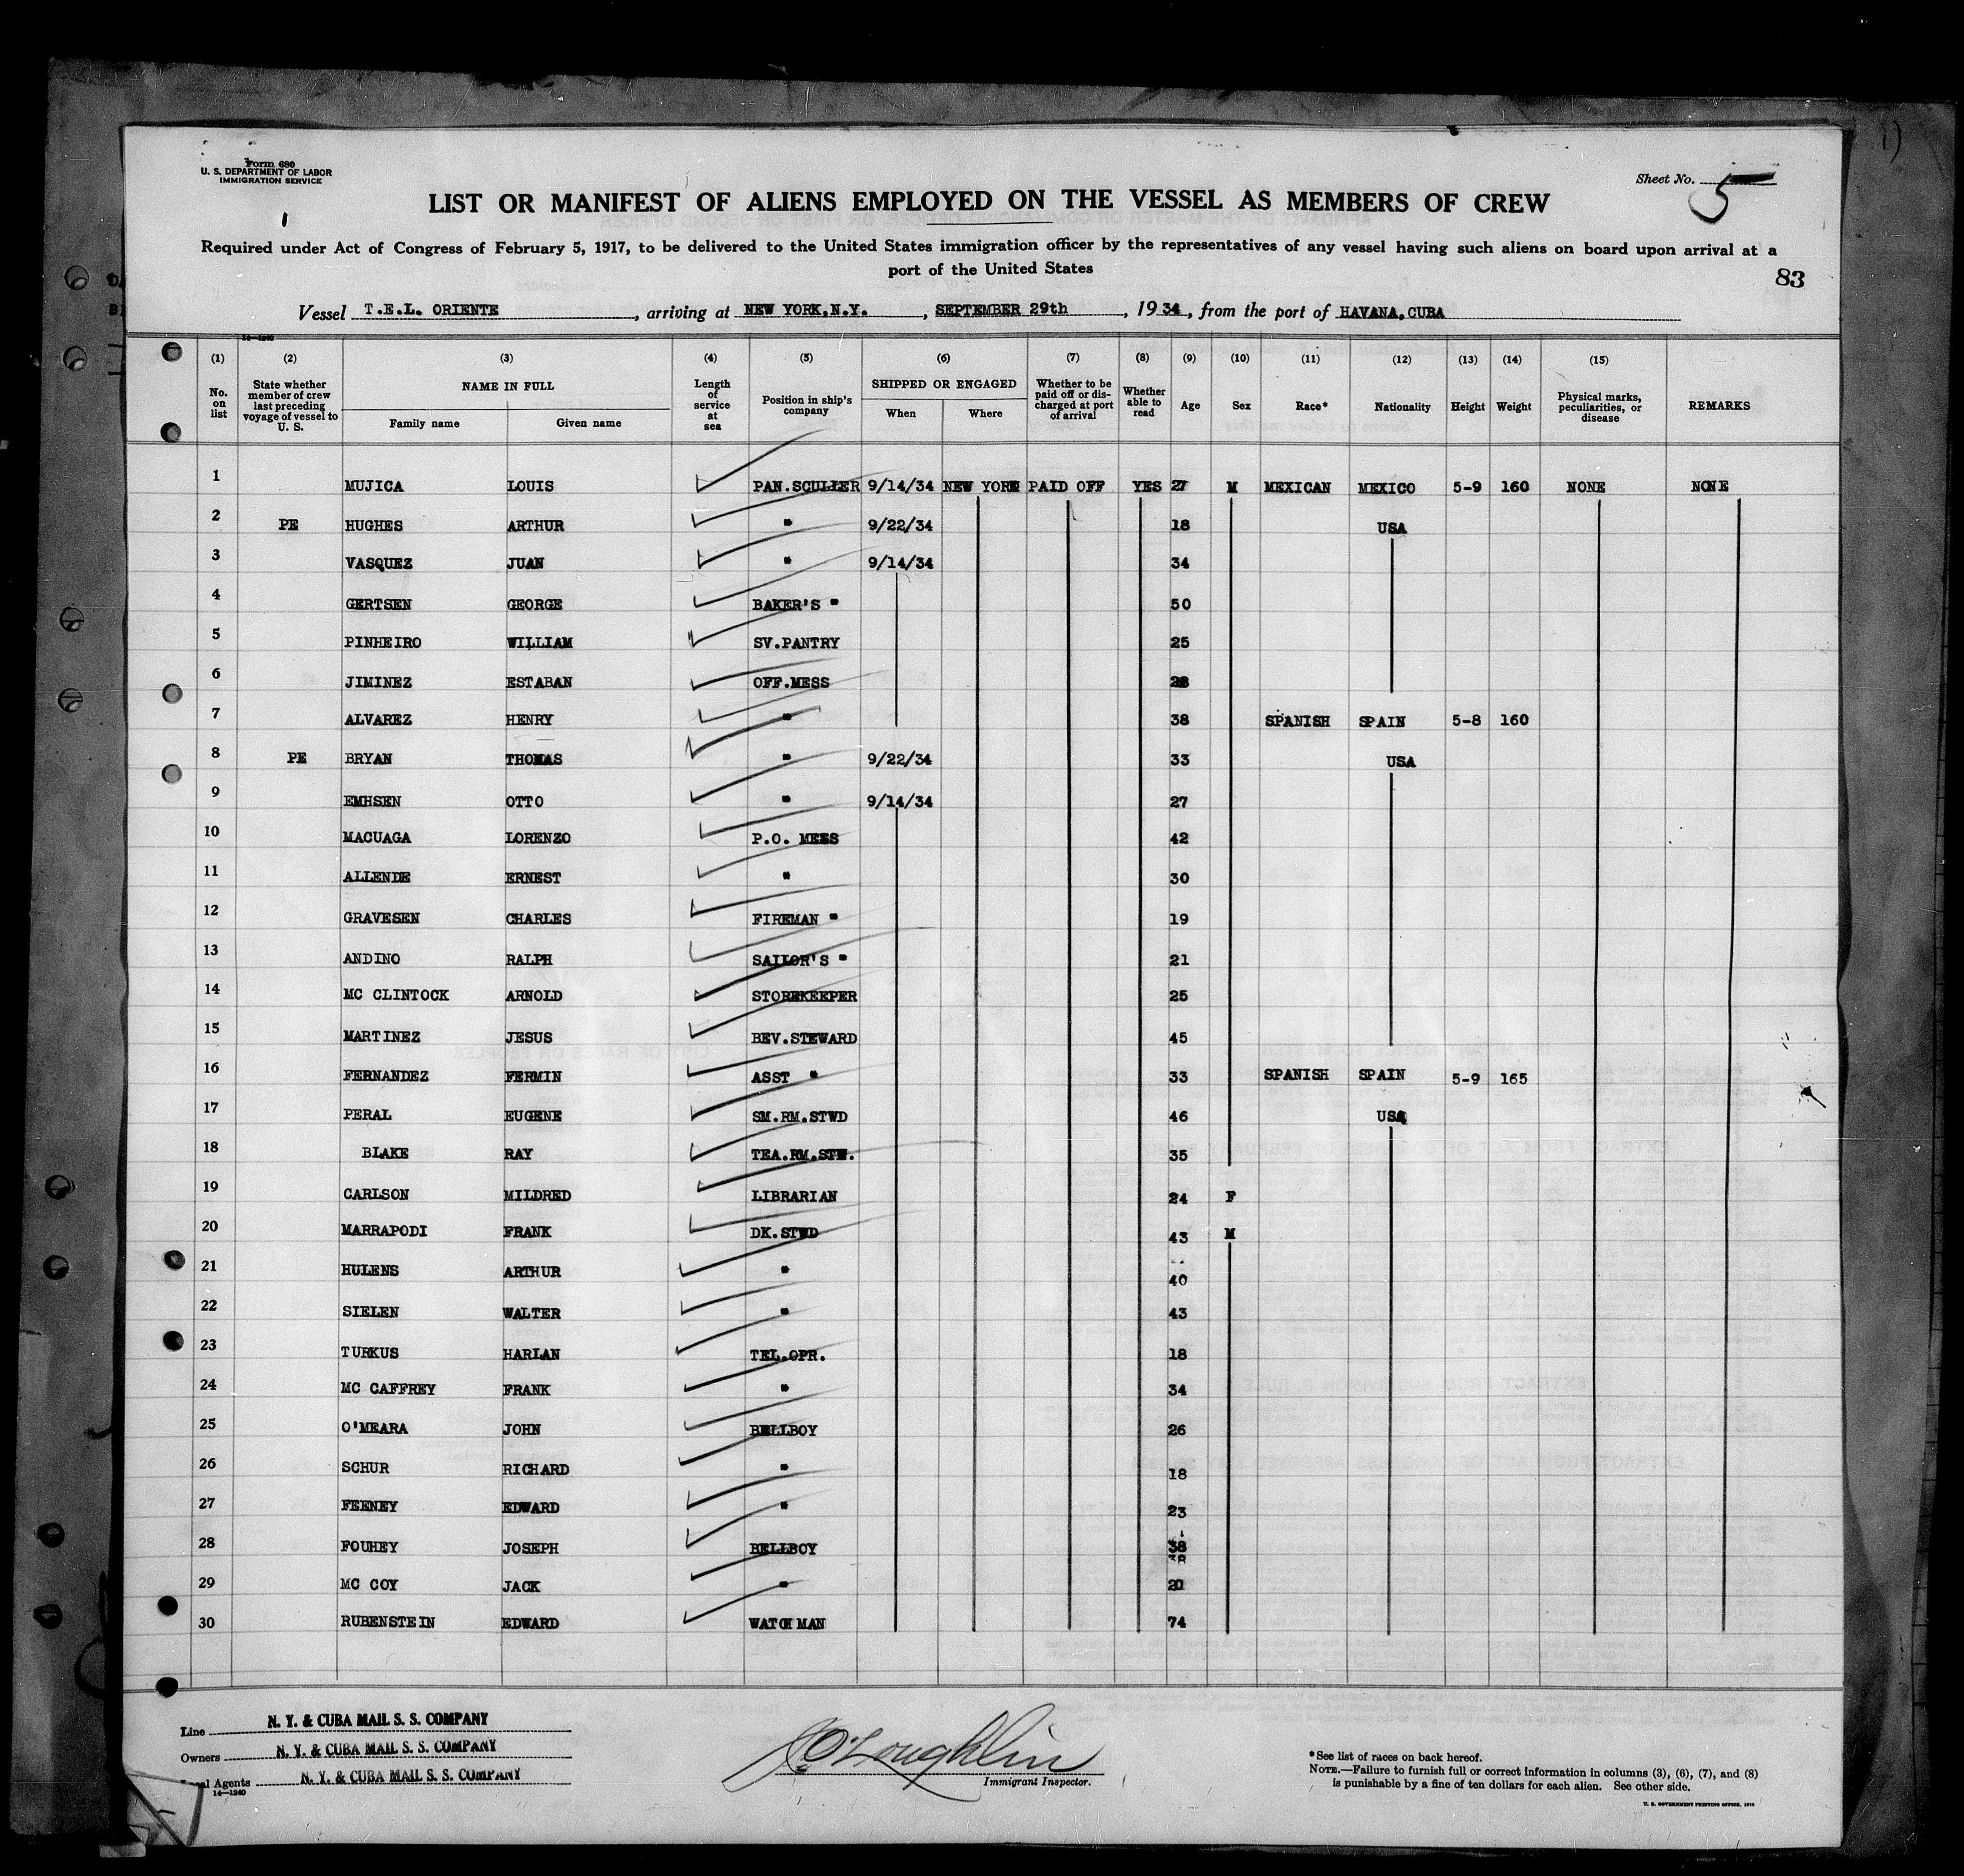 Form 680
U. S. DEPARTMENT OF LABOR
IMMIGRATION SERVICE
Sheet No. 5
LIST OR MANIFEST OF ALIENS EMPLOYED ON THE VESSEL AS MEMBERS OF CREW
Required under Act of Congress of February 5, 1917, to be delivered to the United States immigration officer by the representatives of any vessel having such aliens on board upon arrival at a
port of the United States
83
Vessel T.E.L. ORIENTE, arriving at NEW YORK,N.Y., SEPTEMBER 29th, 1934, from the port of HAVANA,CUBA
14—1240
(1) (2) (3) (4) (5) (6) (7) (8) (9) (10) (11) (12) (13) (14) (15)
No. on list State whether member of crew last preceding voyage of vessel to U. S. NAME IN FULL Family name Given name Length of service at sea Position in ship's company SHIPPED OR ENGAGED When Where Whether to be paid off or discharged at port of arrival Whether able to read Age Sex Race* Nationality Height Weight Physical marks, peculiarities, or disease REMARKS
1 MUJICA LOUIS PAN.SCULLER 9/14/34 NEW YORK PAID OFF YES 27 M MEXICAN MEXICO 5-9 160 NONE NONE
2 PE HUGHES ARTHUR " 9/22/34 18 USA
3 VASQUEZ JUAN " 9/14/34 34
4 GERTSEN GEORGE BAKER'S " 50
5 PINHEIRO WILLIAM SV.PANTRY 25
6 JIMINEZ ESTABAN OFF.MESS 28
7 ALVAREZ HENRY " 38 SPANISH SPAIN 5-8 160
8 PE BRYAN THOMAS " 9/22/34 33 USA
9 EMHSEN OTTO " 9/14/34 27
10 MACUAGA LORENZO P.O. MESS 42
11 ALLENDE ERNEST " 30
12 GRAVESEN CHARLES FIREMAN " 19
13 ANDINO RALPH SAILOR'S " 21
14 MC CLINTOCK ARNOLD STOREKEEPER 25
15 MARTINEZ JESUS BEV.STEWARD 45
16 FERNANDEZ FERMIN ASST " 33 SPANISH SPAIN 5-9 165
17 PERAL EUGENE SM.RM.STWD 46 USA
18 BLAKE RAY TEA.RM.STW. 35
19 CARLSON MILDRED LIBRARIAN 24 F
20 MARRAPODI FRANK DK.STWD 43 M
21 HULENS ARTHUR " 40
22 SIELEN WALTER " 43
23 TURKUS HARLAN TEL.OPR. 18
24 MC CAFFREY FRANK " 34
25 O'MEARA JOHN BELLBOY 26
26 SCHUR RICHARD " 18
27 FEENEY EDWARD " 23
28 FOUHEY JOSEPH BELLBOY 38
29 MC COY JACK " 20
30 RUBENSTEIN EDWARD WATCHMAN 74
Line N. Y. & CUBA MAIL S. S. COMPANY
Owners N. Y. & CUBA MAIL S. S. COMPANY
Agents N. Y. & CUBA MAIL S. S. COMPANY
14—1240
J. O'Loughlin
Immigrant Inspector.
*See list of races on back hereof.
NOTE.—Failure to furnish full or correct information in columns (3), (6), (7), and (8)
is punishable by a fine of ten dollars for each alien. See other side.
U. S. GOVERNMENT PRINTING OFFICE